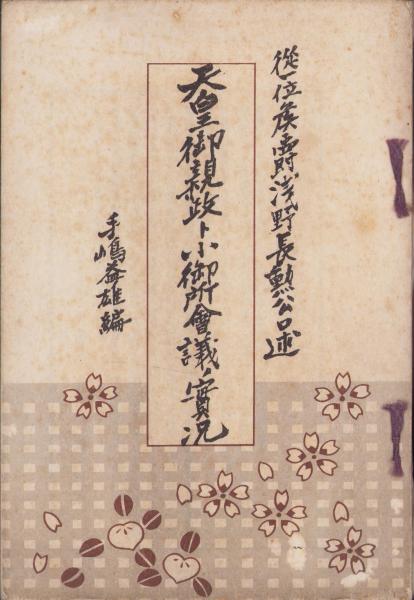 從一位侯爵淺野長勲公口述
天皇御親政ト小御所會議ノ實況
手嶋益雄編